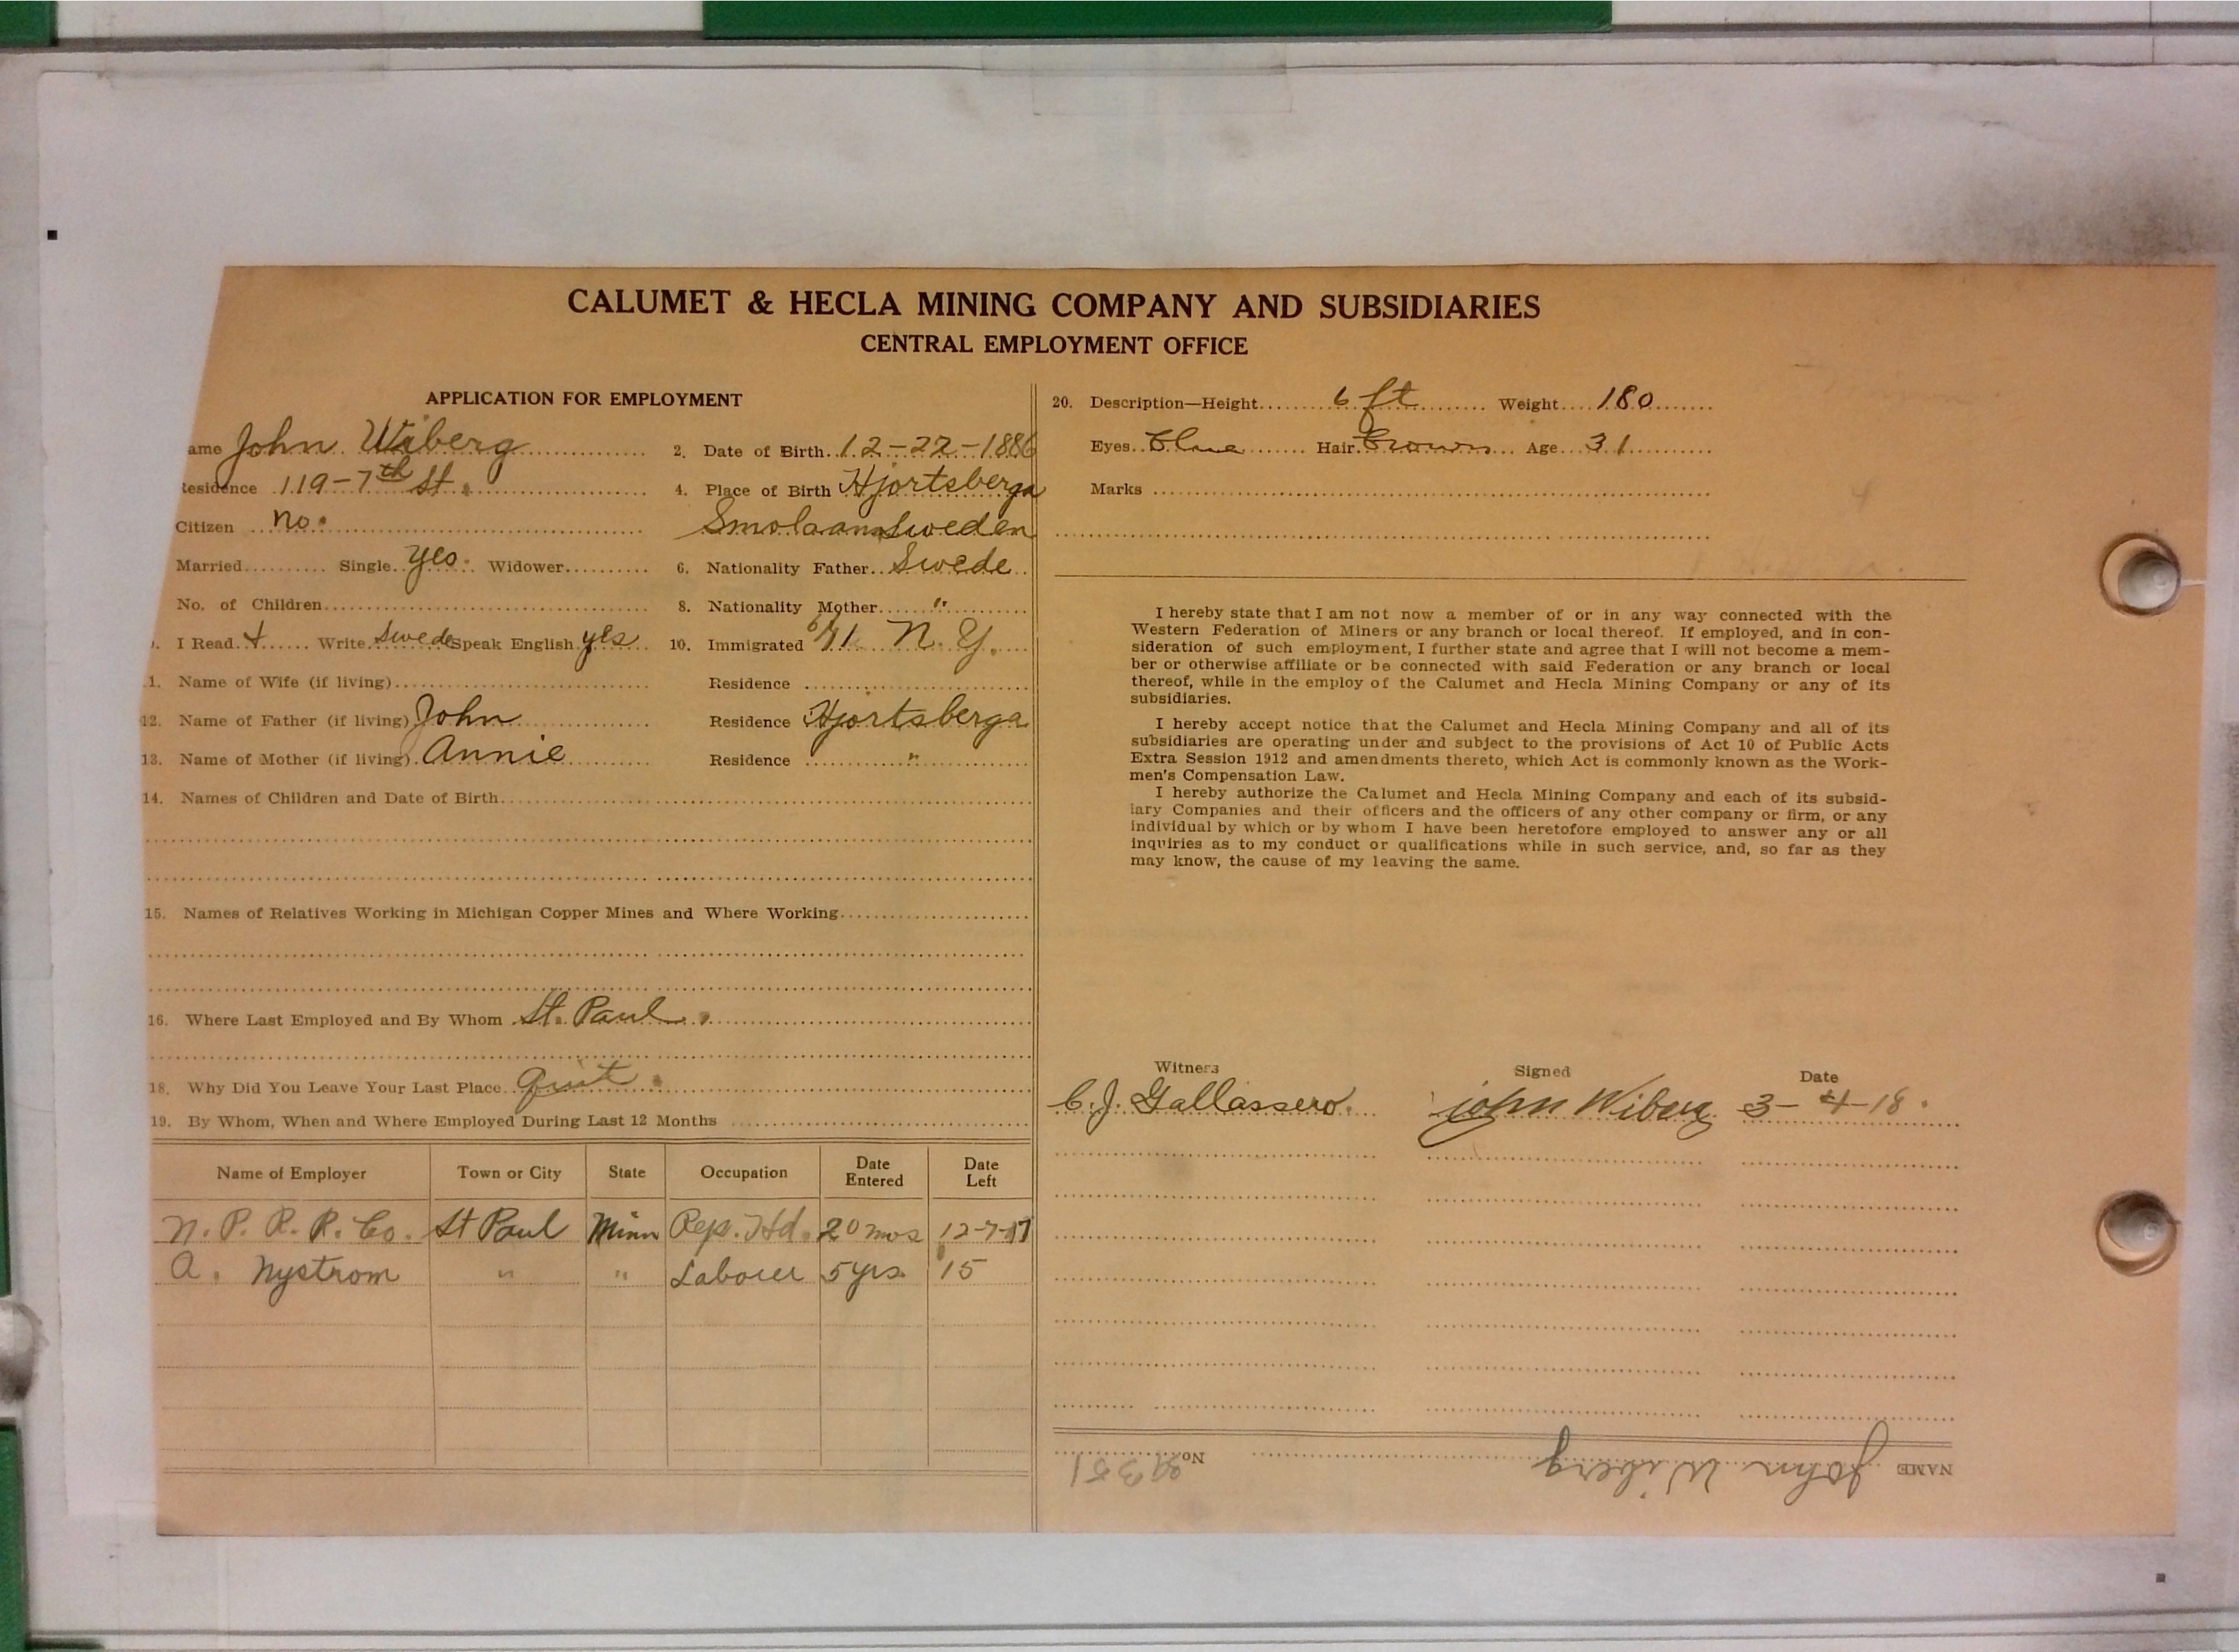 CALUMET & HECLA MINING COMPANY AND SUBSIDIARIES
CENTRAL EMPLOYMENT OFFICE
APPLICATION FOR EMPLOYMENT
ame John Wiberg
2. Date of Birth 12-22-1886
Residence 119-7th St.
4. Place of Birth Hjortsberga
Citizen no.
Smolaan Sweden
Married Single yes. Widower
6. Nationality Father Swede
No. of Children
8. Nationality Mother "
I Read + Write Swede Speak English yes
10. Immigrated 6/11 N.Y.
1. Name of Wife (if living)
Residence
12. Name of Father (if living) John
Residence Hjortsberga
13. Name of Mother (if living) Annie
Residence "
14. Names of Children and Date of Birth
15. Names of Relatives Working in Michigan Copper Mines and Where Working
16. Where Last Employed and By Whom St. Paul
18. Why Did You Leave Your Last Place quit
19. By Whom, When and Where Employed During Last 12 Months
Name of Employer Town or City State Occupation Date Entered Date Left
N. P. R. R. Co. St Paul Minn Rep. Hd. 20 mos 12-7-17
A. Nystrom " " Laborer 5 yrs '15
20. Description—Height 6 ft Weight 180
Eyes Blue Hair Brown Age 31
Marks
I hereby state that I am not now a member of or in any way connected with the
Western Federation of Miners or any branch or local thereof. If employed, and in con-
sideration of such employment, I further state and agree that I will not become a mem-
ber or otherwise affiliate or be connected with said Federation or any branch or local
thereof, while in the employ of the Calumet and Hecla Mining Company or any of its
subsidiaries.
I hereby accept notice that the Calumet and Hecla Mining Company and all of its
subsidiaries are operating under and subject to the provisions of Act 10 of Public Acts
Extra Session 1912 and amendments thereto, which Act is commonly known as the Work-
men's Compensation Law.
I hereby authorize the Calumet and Hecla Mining Company and each of its subsid-
iary Companies and their officers and the officers of any other company or firm, or any
individual by which or by whom I have been heretofore employed to answer any or all
inquiries as to my conduct or qualifications while in such service, and, so far as they
may know, the cause of my leaving the same.
Witness Signed Date
C. J. Gallassero. john Wiberg 3-4-18.
NAME John Wiberg No.